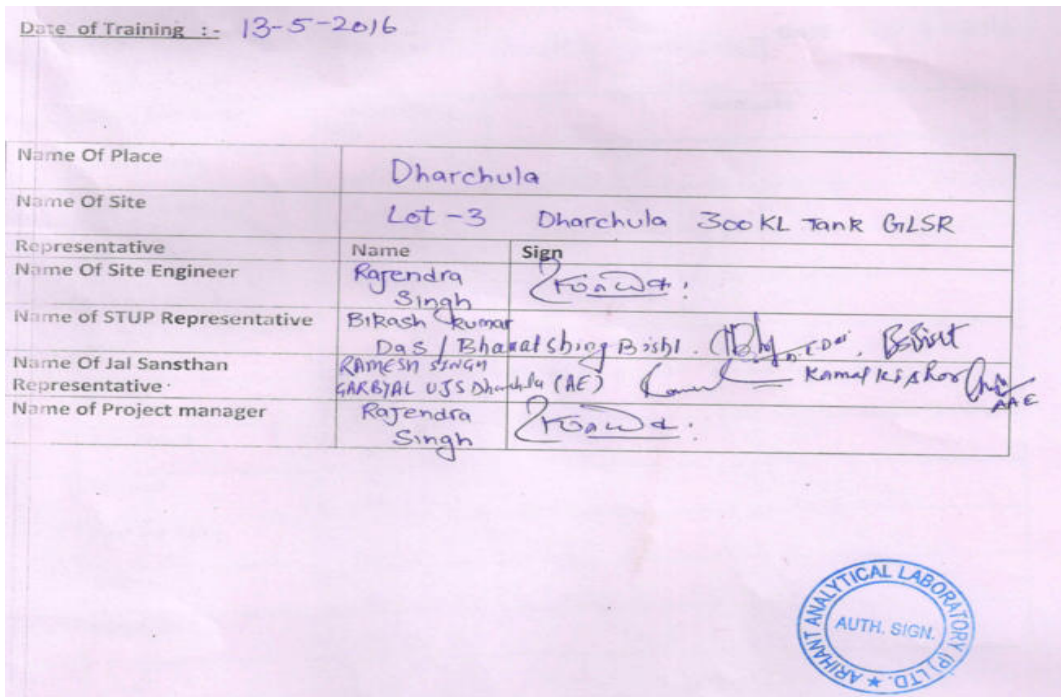 Date of Training :- 13-5-2016
Name Of Place Dharchula
Name Of Site Lot-3 Dharchula 300KL Tank GLSR
Representative Name Sign
Name Of Site Engineer Rajendra
Singh
Name of STUP Representative Bikash Kumar
Das / Bharat Bisht. BSBisht
Name Of Jal Sansthan
Representative
RAMESH SINGH
GARBYAL UJS Dharchula (AE) Kamal Kishor
AAE
Name of Project manager Rajendra
Singh
ARIHANT ANALYTICAL LABORATORY (P) LTD. ★
AUTH. SIGN.